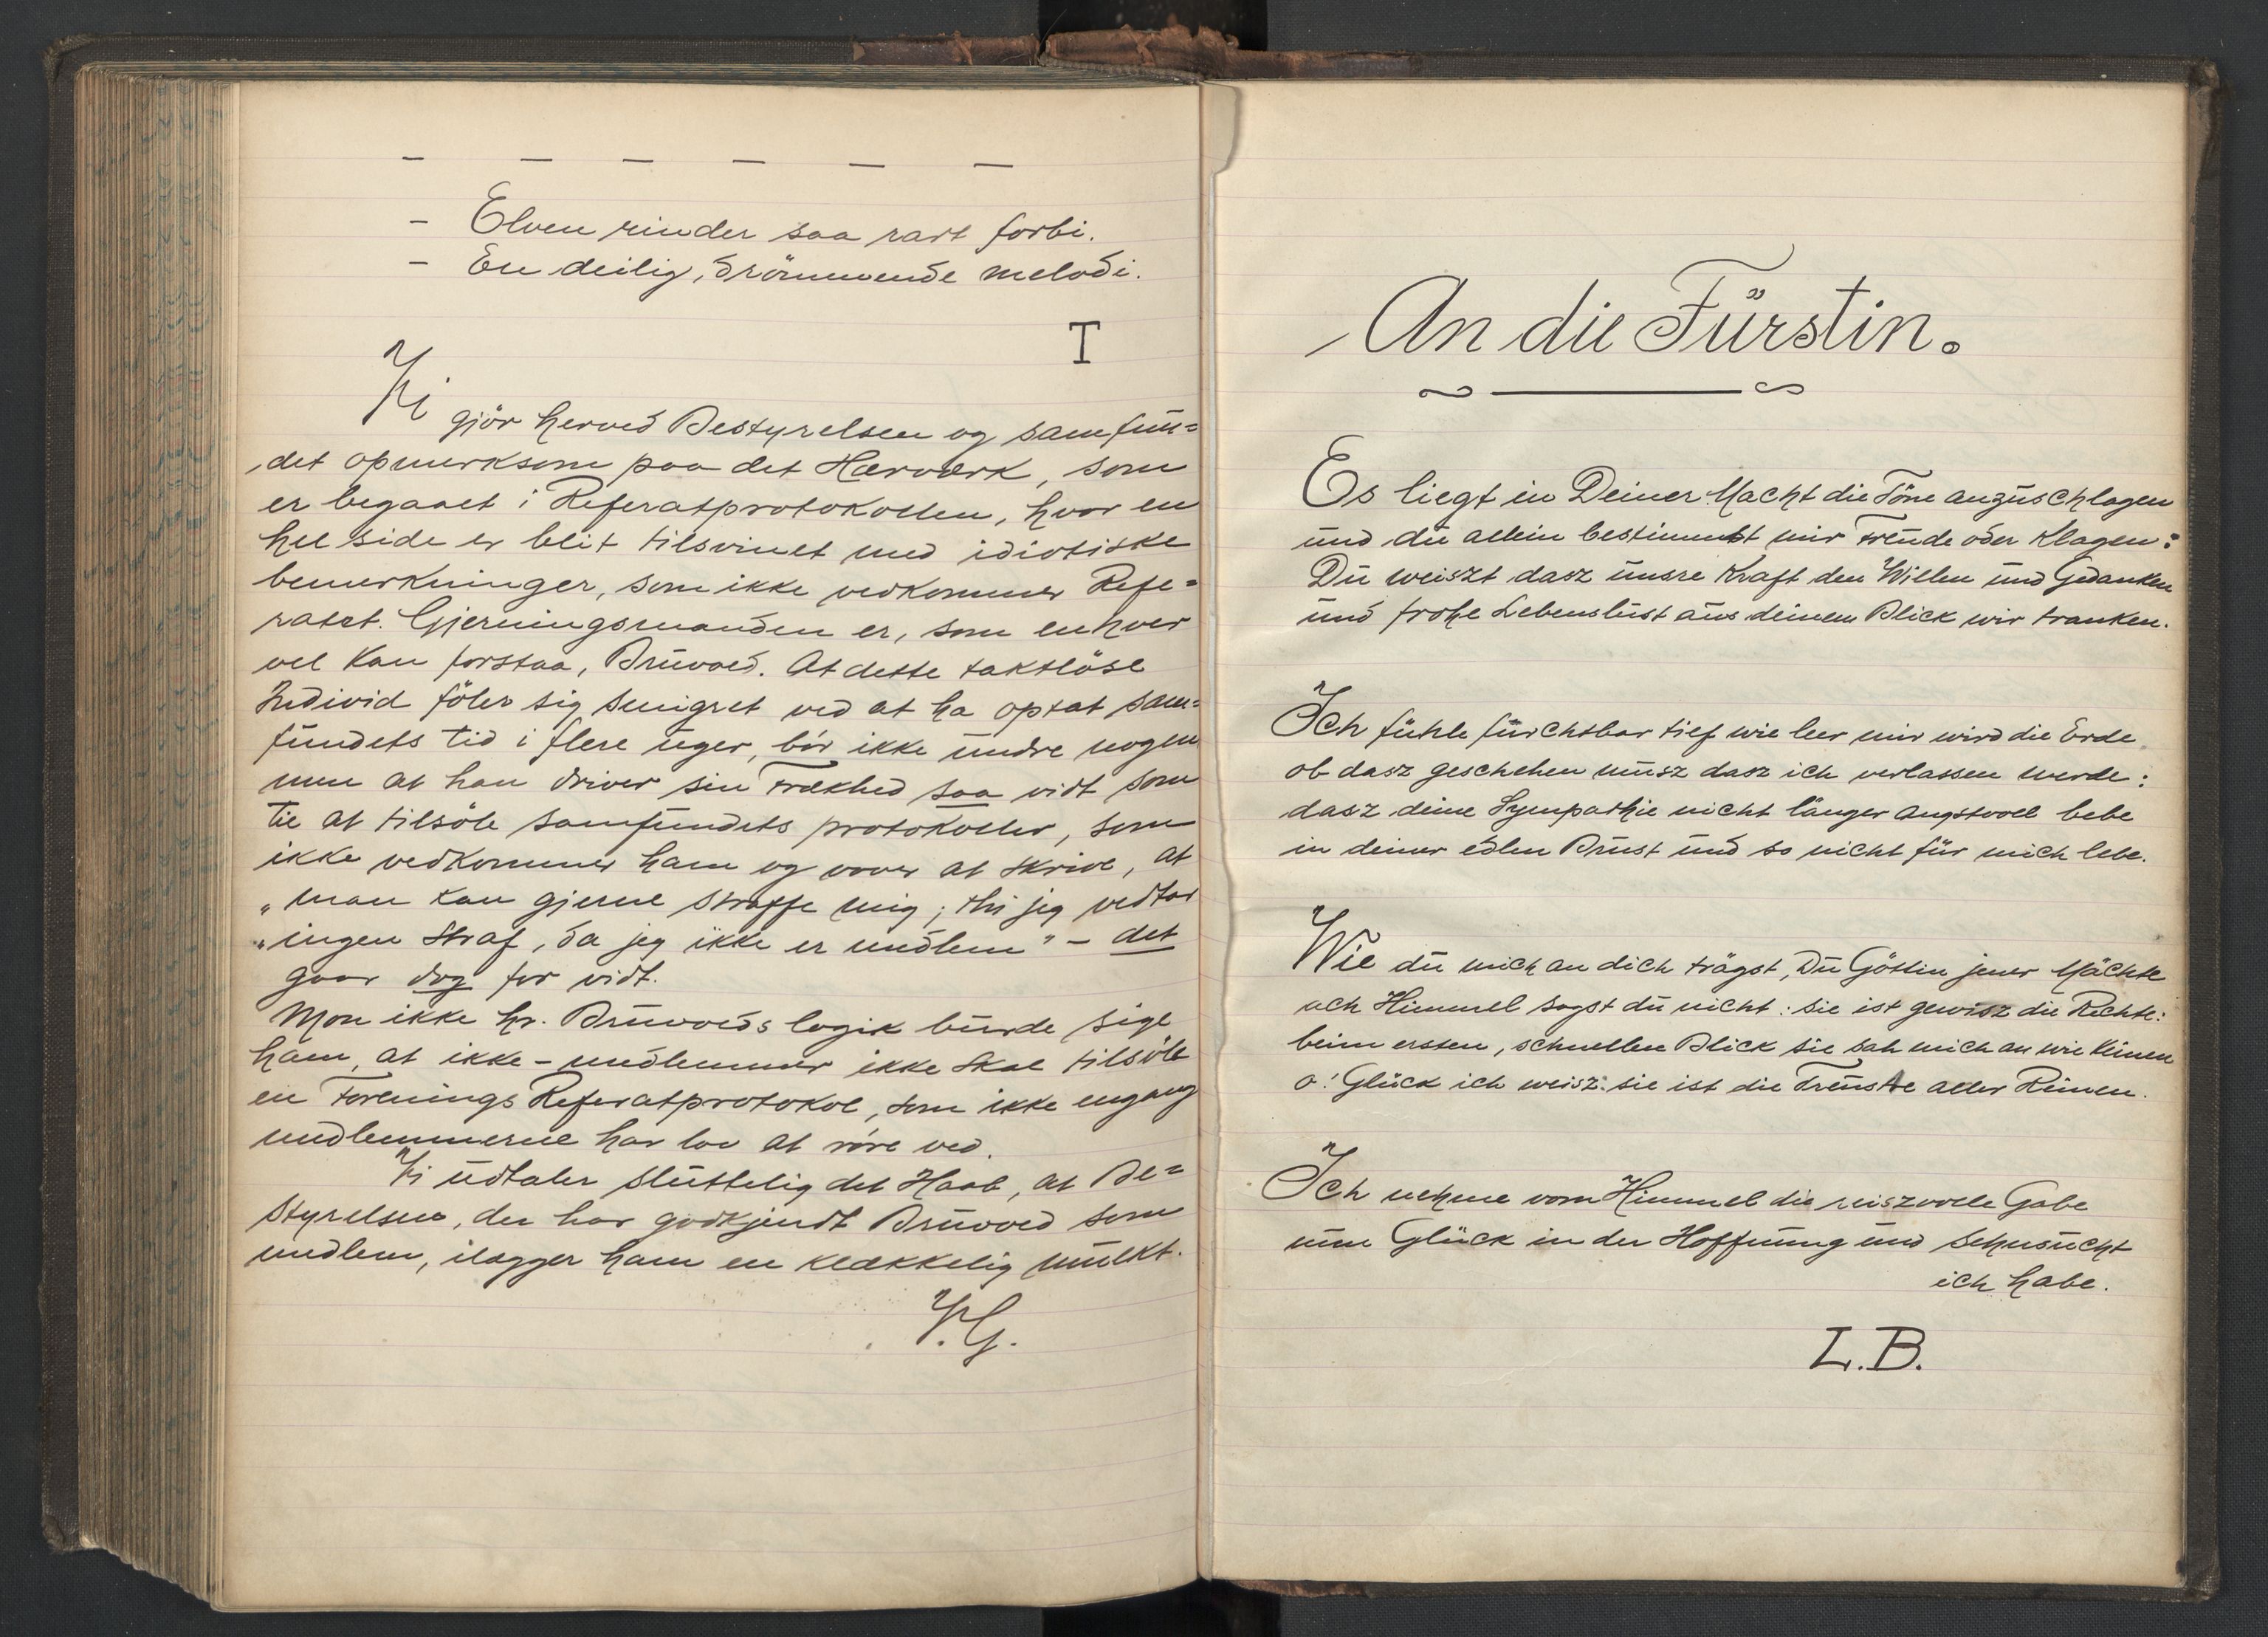 — — — — — —
— Elven rinder saa rart forbi.
— En deilig, drömmende melodi.
T
Vi
gjör herved Bestyrelsen og samfun=
det opmerksom paa det Hærverk, som
er begaaet i Referatprotokollen, hvor en
hel side er blit tilsvinet med idiotiske
bemerkninger, som ikke vedkommer Refe=
ratet. Gjerningsmanden er, som enhver
vel kan forstaa, Bruvold. At dette taktlöse
Individ föler sig smigret ved at ha optat sam=
fundets tid i flere uger, bör ikke undre nogen
men at han driver sin Frækhed saa vidt som
til at tilsöle samfundets protokoller, som
ikke vedkommer ham og vover at skrive, at
„man kan gjerne straffe mig; thi jeg vedtar
„ingen straf, da jeg ikke er medlem" — det
gaar dog for vidt.
Mon ikke hr. Bruvolds logik burde sige
ham, at ikke-medlemmer ikke skal tilsöle
en Forenings Referatprotokol, som ikke engang
medlemmerne har lov at röre ved.
Vi udtaler sluttelig det Haab, at Be=
styrelsen, der har godkjendt Bruvold som
medlem, ilægger ham en klækkelig mulkt.
V.G.
An die Fürstin.
Es liegt in Deiner Macht die Töne anzuschlagen
und du allein bestimmst mir Freude oder Klagen:
Du weiszt dasz unsre Kraft den Willen und Gedanken
und frohe Lebenslust aus deinem Blick wir tranken.
Ich fühle furchtbar tief wie leer mir wird die Erde
ob dasz geschehen musz dasz ich verlassen werde:
dasz deine Sympathie nicht länger angstvoll bebe
in deiner edlen Brust und so nicht für mich lebe.
Wie du mich an dich trägst, Du Göttin jener Mächte
ach Himmel sagst du nicht: sie ist gewisz die Rechte:
beim ersten, schnellen Blick sie sah mich an wie Keinen
o! Glück ich weisz: sie ist die Treuste aller Reinen.
Ich nehme vom Himmel die reiszvolle Gabe
nun Glück in der Hoffnung und Sehnsucht
ich habe.
L.B.